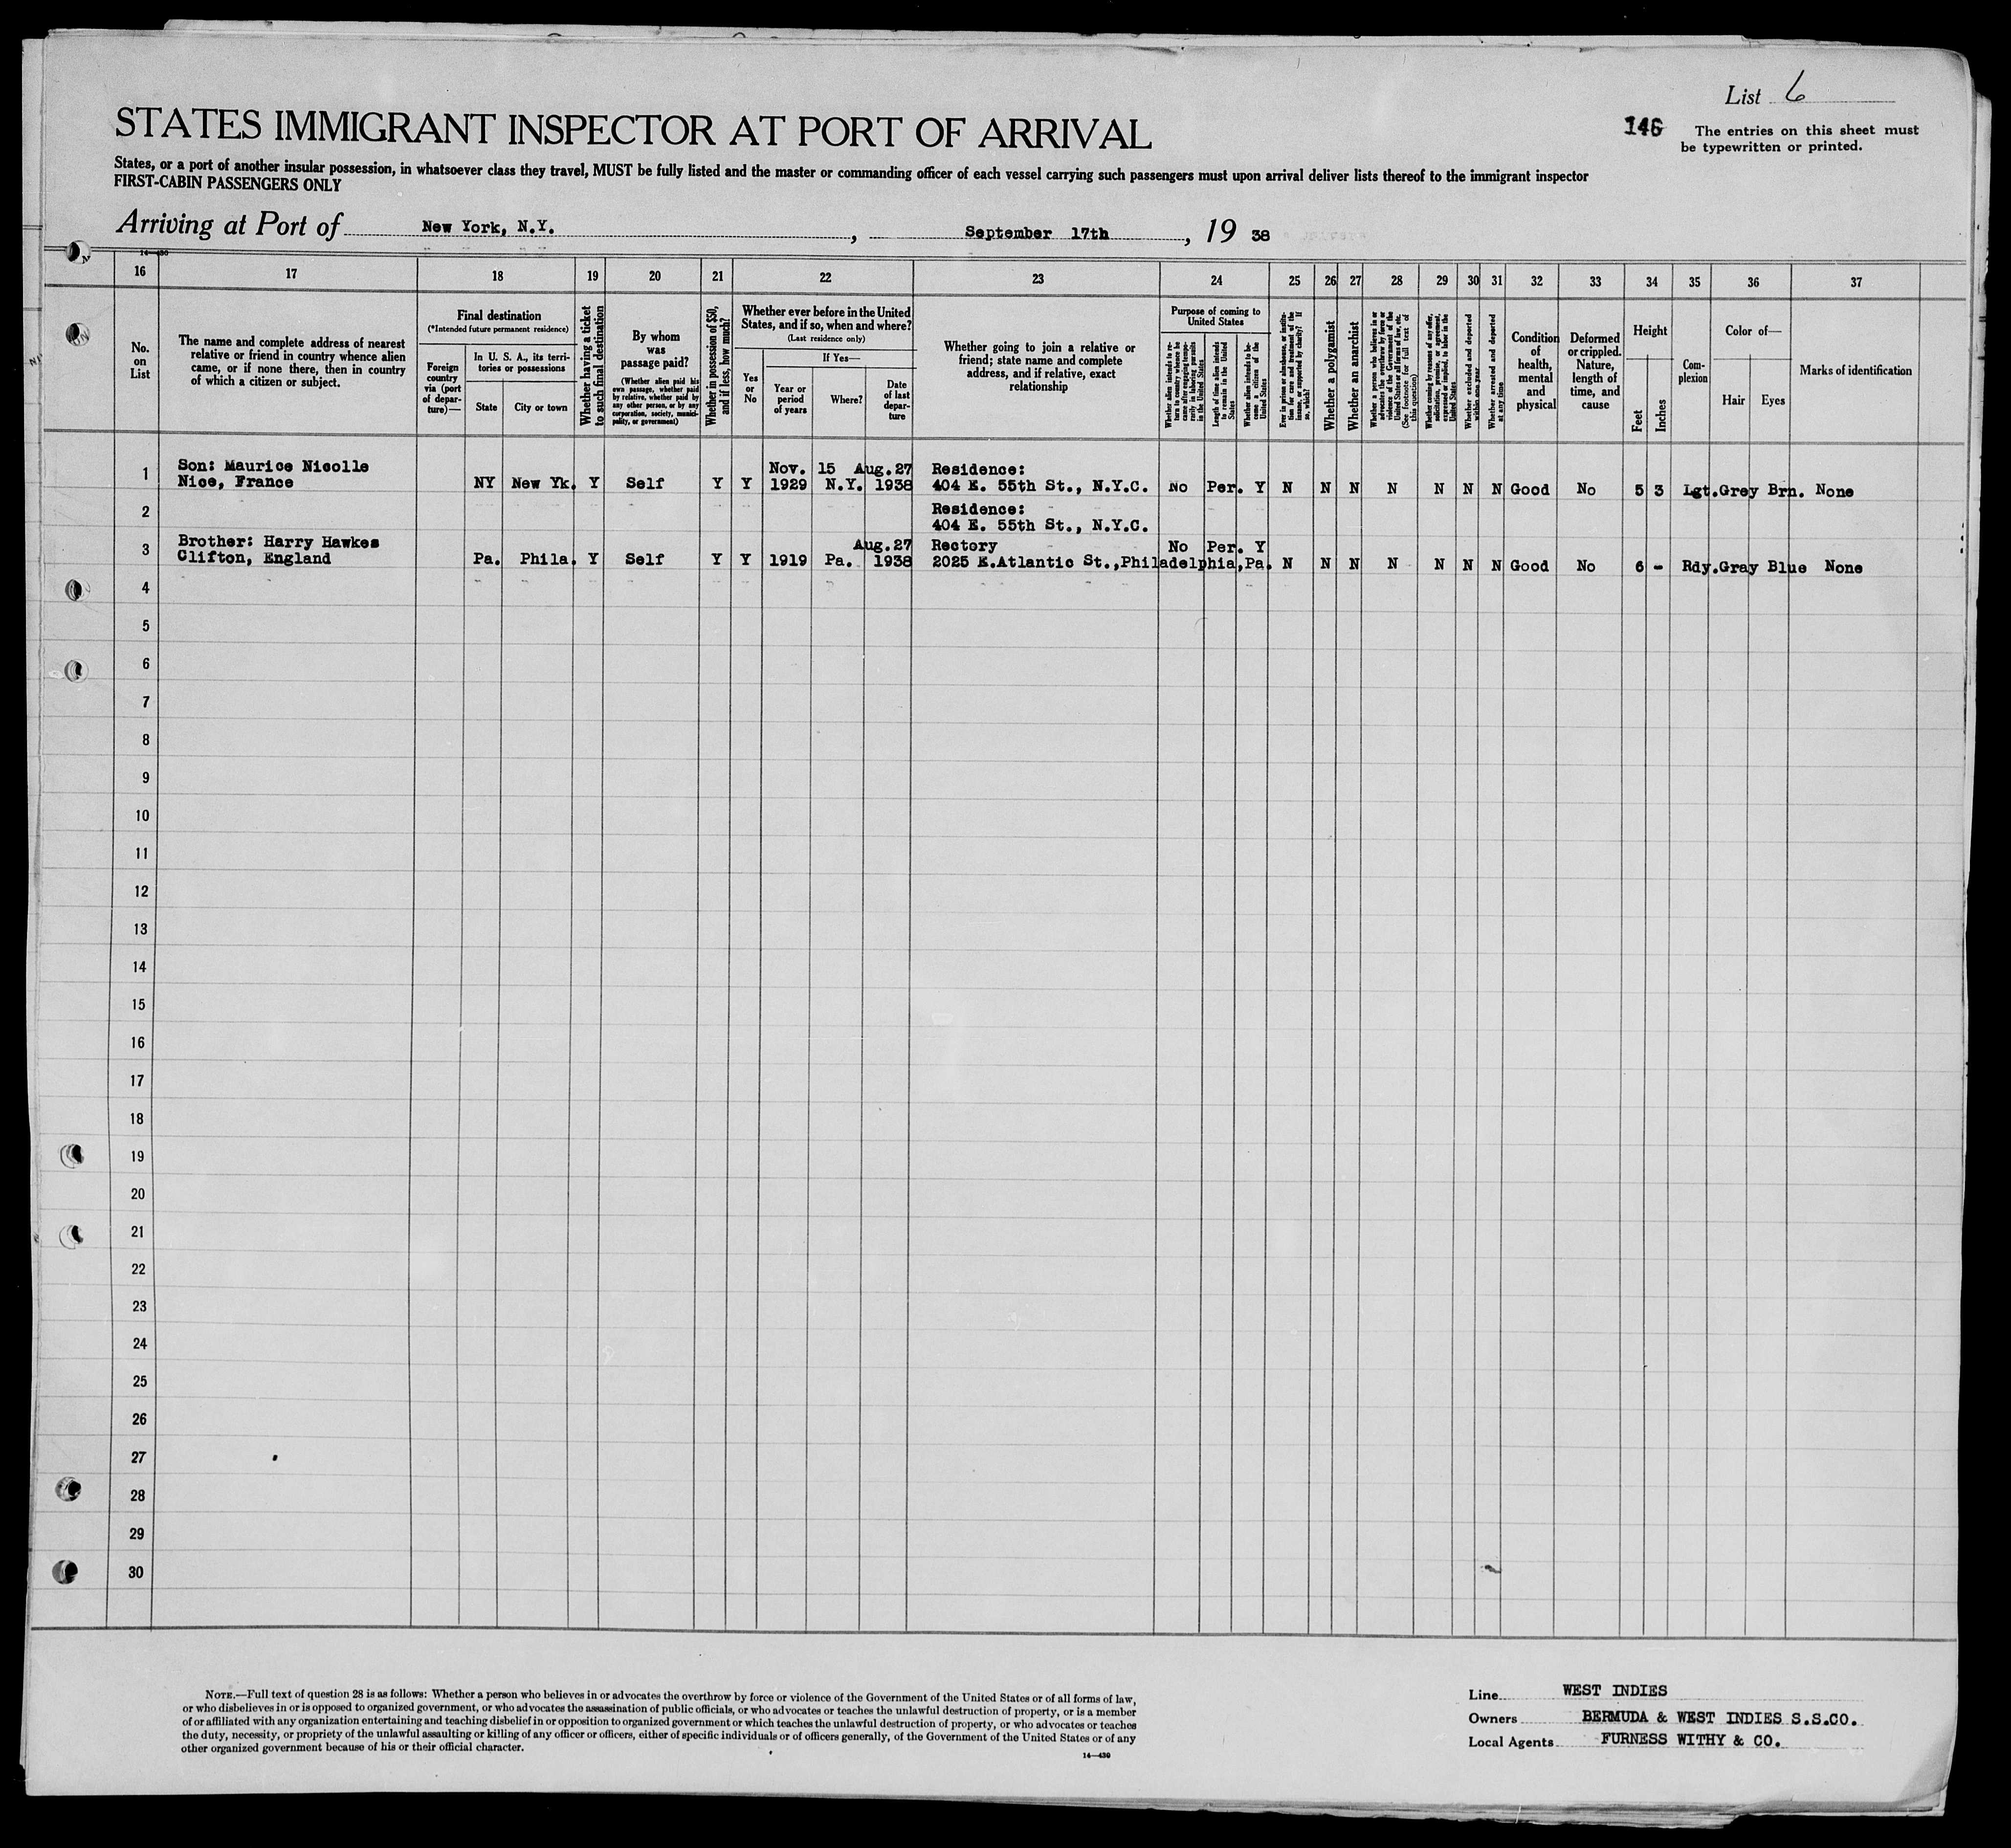 List 6
STATES IMMIGRANT INSPECTOR AT PORT OF ARRIVAL
146
The entries on this sheet must
be typewritten or printed.
States, or a port of another insular possession, in whatsoever class they travel, MUST be fully listed and the master or commanding officer of each vessel carrying such passengers must upon arrival deliver lists thereof to the immigrant inspector
FIRST-CABIN PASSENGERS ONLY
Arriving at Port of New York, N.Y., September 17th, 19 38
14—430
16 17 18 19 20 21 22 23 24 25 26 27 28 29 30 31 32 33 34 35 36 37
No. on List
The name and complete address of nearest
relative or friend in country whence alien
came, or if none there, then in country
of which a citizen or subject.
Final destination
(*Intended future permanent residence)
Foreign country via (port of departure)—
In U. S. A., its territories or possessions
State
City or town
Whether having a ticket to such final destination
By whom was passage paid?
(Whether alien paid his own passage, whether paid by relative, whether paid by any other person, or by any corporation, society, municipality, or government)
Whether in possession of $50, and if less, how much?
Whether ever before in the United States, and if so, when and where?
(Last residence only)
Yes or No
If Yes—
Year or period of years
Where?
Date of last departure
Whether going to join a relative or
friend; state name and complete
address, and if relative, exact
relationship
Purpose of coming to United States
Whether alien intends to return to country whence he came after engaging temporarily in laboring pursuits in the United States
Length of time alien intends to remain in the United States
Whether alien intends to become a citizen of the United States
Ever in prison or almshouse, or institution for care and treatment of the insane, or supported by charity? If so, which?
Whether a polygamist
Whether an anarchist
Whether a person who believes in or advocates the overthrow by force or violence of the Government of the United States or all forms of law, etc. (See footnote for full text of this question)
Whether coming by reasons of any offer, solicitation, promise, or agreement, expressed or implied, to labor in the United States
Whether excluded and deported within one year
Whether arrested and deported at any time
Condition of health, mental and physical
Deformed or crippled. Nature, length of time, and cause
Height
Feet
Inches
Complexion
Color of—
Hair
Eyes
Marks of identification
1 Son: Maurice Nicolle Nov. 15 Aug.27 Residence:
Nice, France NY New Yk. Y Self Y Y 1929 N.Y. 1938 404 E. 55th St., N.Y.C. No Per. Y N N N N N N N Good No 5 3 Lgt. Grey Brn. None
2 Residence:
404 E. 55th St., N.Y.C.
3 Brother: Harry Hawkes Aug.27 Rectory No Per. Y
Clifton, England Pa. Phila. Y Self Y Y 1919 Pa. 1938 2025 E.Atlantic St.,Philadelphia,Pa. N N N N N N N Good No 6 - Rdy. Gray Blue None
4
5
6
7
8
9
10
11
12
13
14
15
16
17
18
19
20
21
22
23
24
25
26
27
28
29
30
NOTE.—Full text of question 28 is as follows: Whether a person who believes in or advocates the overthrow by force or violence of the Government of the United States or of all forms of law,
or who disbelieves in or is opposed to organized government, or who advocates the assassination of public officials, or who advocates or teaches the unlawful destruction of property, or is a member
of or affiliated with any organization entertaining and teaching disbelief in or opposition to organized government or which teaches the unlawful destruction of property, or who advocates or teaches
the duty, necessity, or propriety of the unlawful assaulting or killing of any officer or officers, either of specific individuals or of officers generally, of the Government of the United States or of any
other organized government because of his or their official character.
14—430
Line WEST INDIES
Owners BERMUDA & WEST INDIES S.S.CO.
Local Agents FURNESS WITHY & CO.